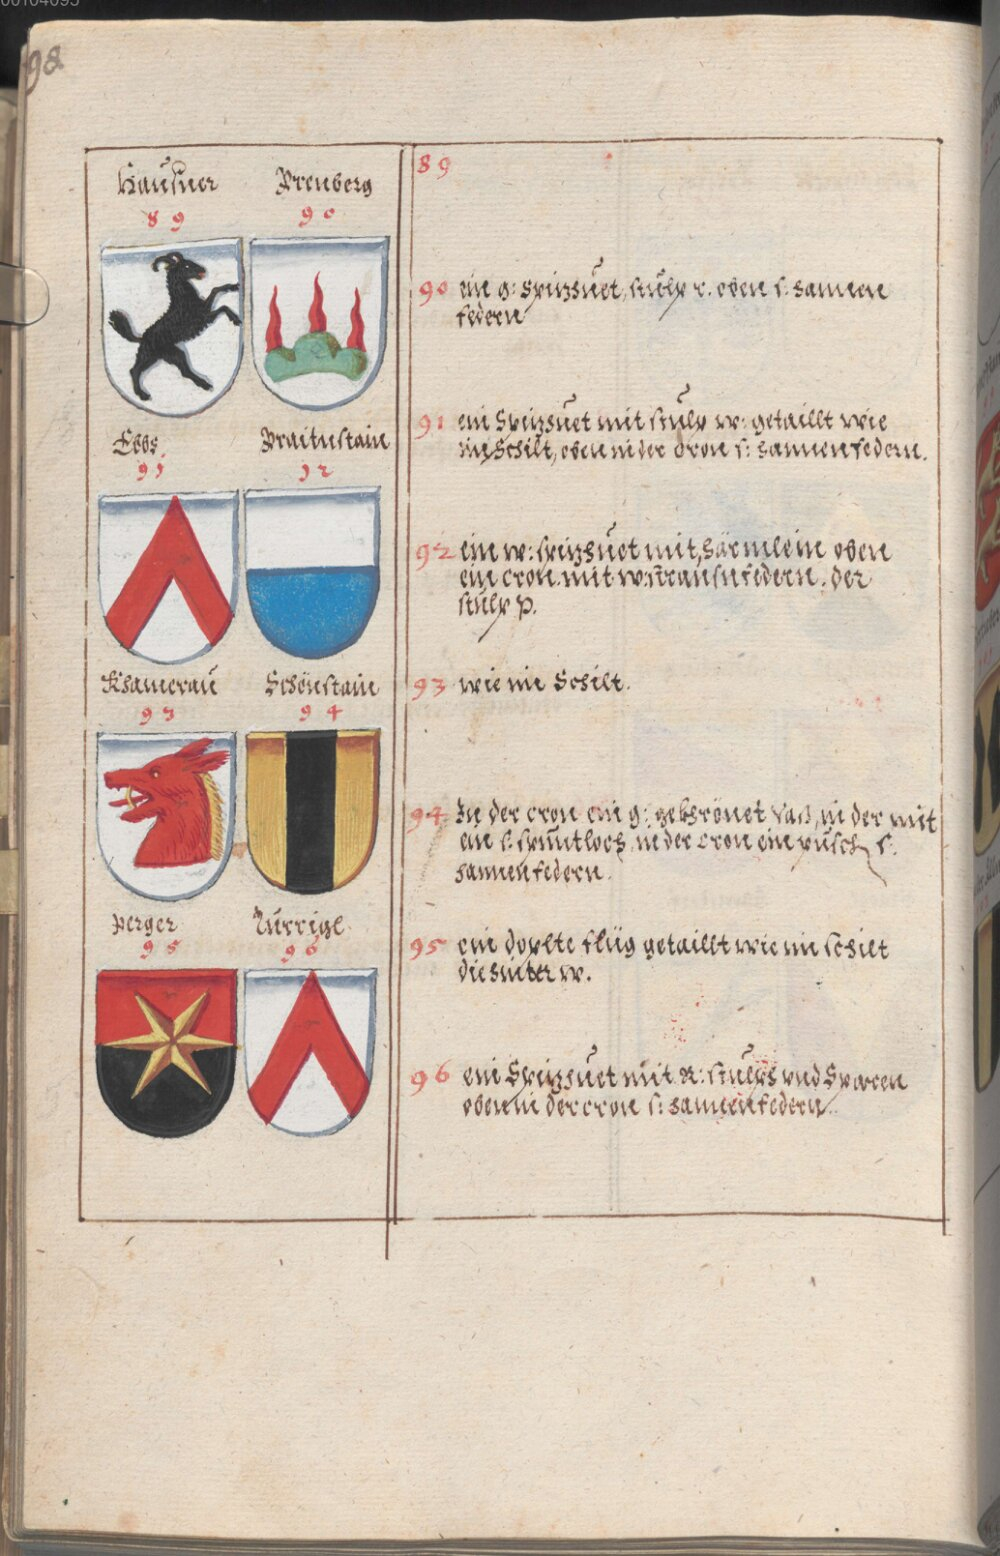 00104095
98
Hausner Prenberg
89 90
Ebbs Praitnstain
91 92
Khamerau Schönstain
93 94
perger Zürrigl
95 96
89
90 ein g: Spizhuet, stulp r. oben s: hannen
federn
91 ein Spizhuet mit stulp w: getaillt wie
im Schilt, oben in der cron s: hannenfedern.
92 ein w: spizhuet mit härmlein oben
ein cron mit w: straussnfedern. der
stulp p.
93 wie im Schilt.
94 In der cron ein g: gekhrönet in der mit
ein s: in der cron ein pusch s:
hannenfedern.
95 ein doplte flüg getaillt wie im schilt
die hinter w.
96 ein Spizhuet mit R: stulp und Sparen
oben in der cron s: hannenfedern.